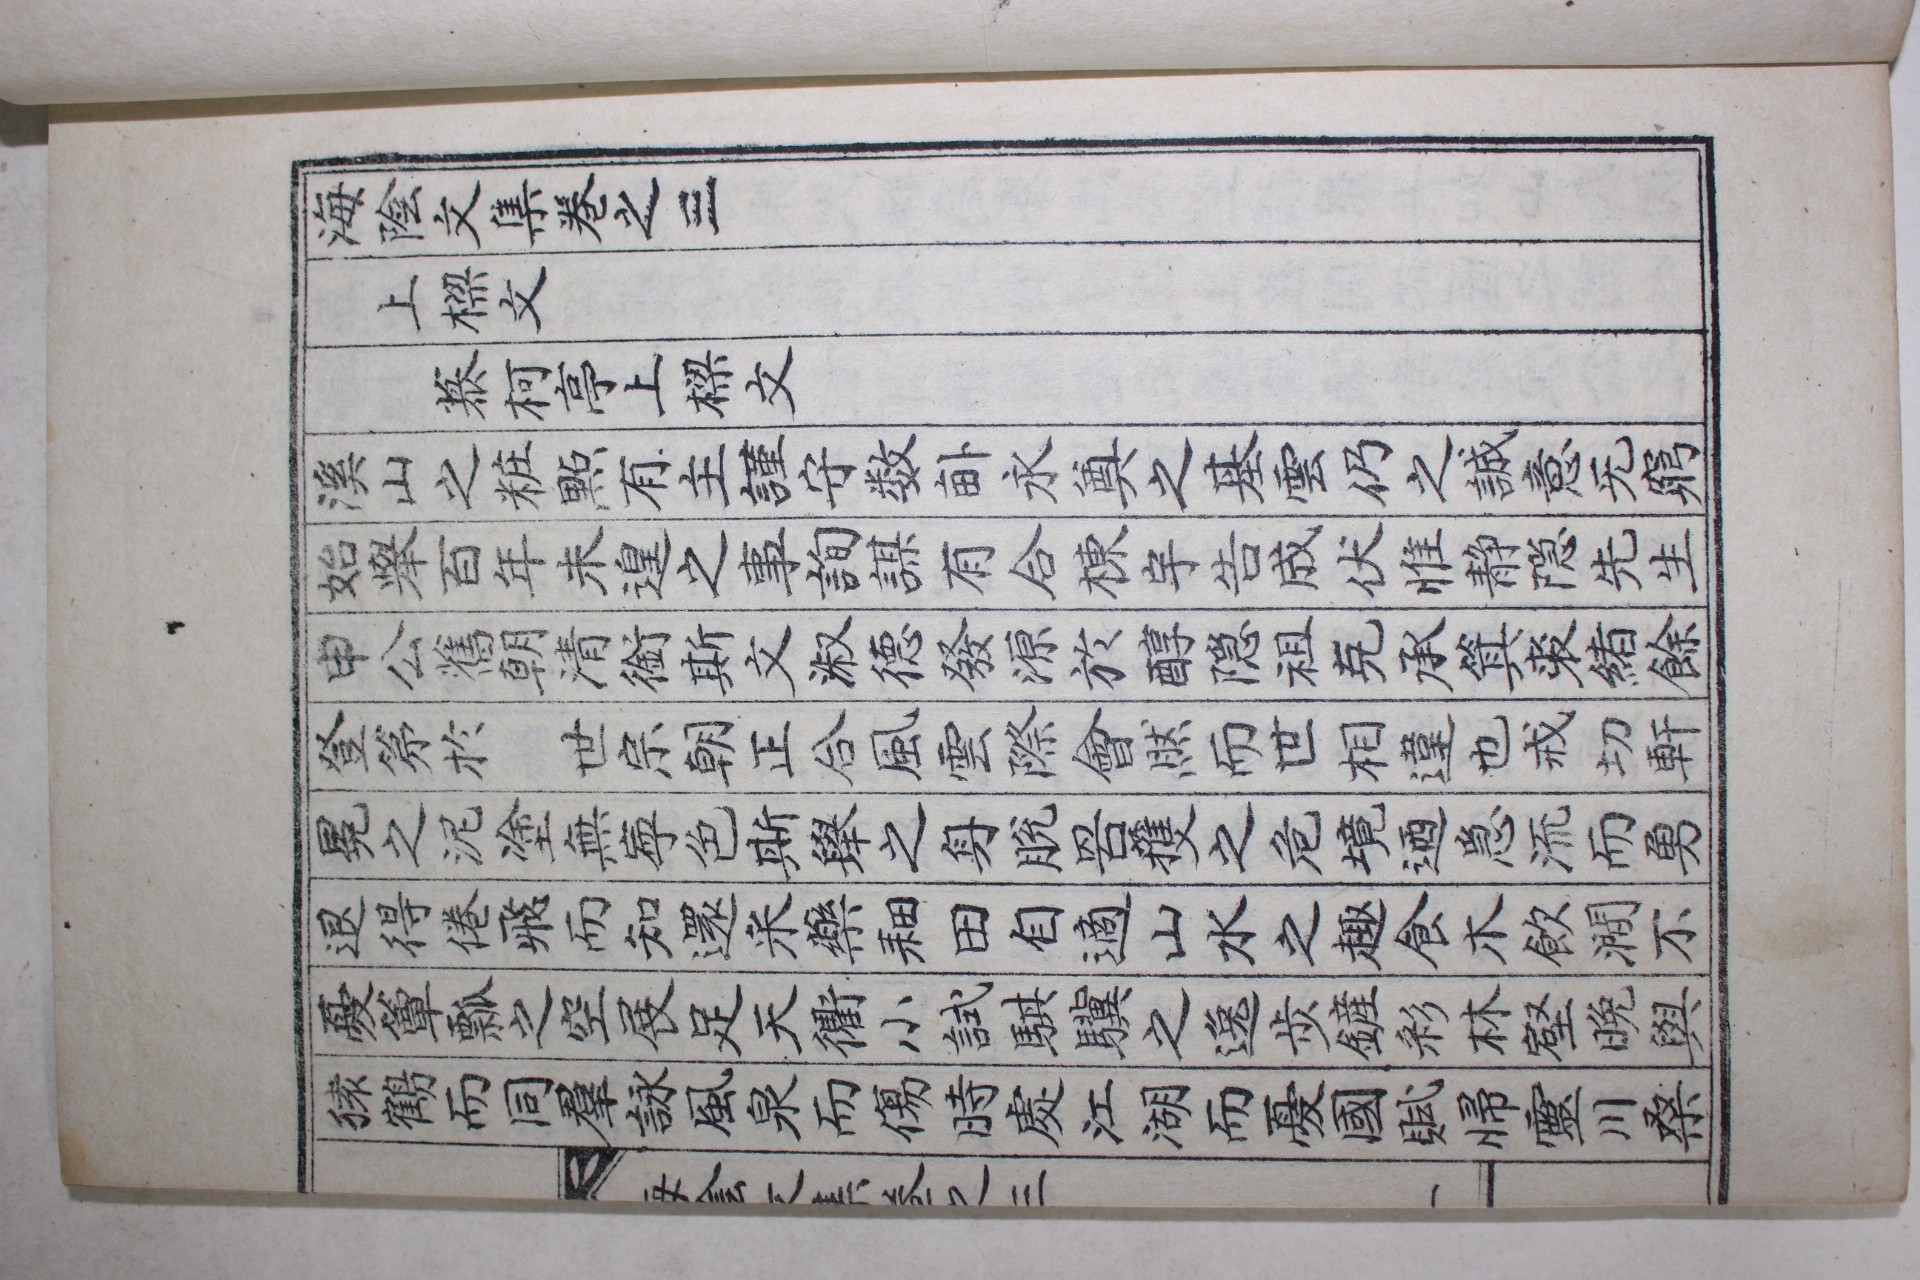 海陰文集卷之三
上樑文
慕柯亭上樑文
溪山之粧點有主謹守数畝永奠之基雲仍之誠意无窮
始擧百年未遑之事詢謀有合棟宇告成伏惟静隠先生
申公舊朝清銜斯文淑德發源於醇隠祖克承箕裘緒餘
登第於 世宗朝正合風雲際會然而世相違也戒切軒
冕之泥塗無寧色斯擧之身脫罟擭之危境迺急流而勇
退得倦飛而知還采藥耕田自適山水之趣食木飲澗不
憂簞瓢之空展足天衢小試騏驥之逸步鏟彩林壑晚與
猿鶴而同羣詠風泉而傷時處江湖而憂國賦帰靈川桑
海陰文集卷之三
一